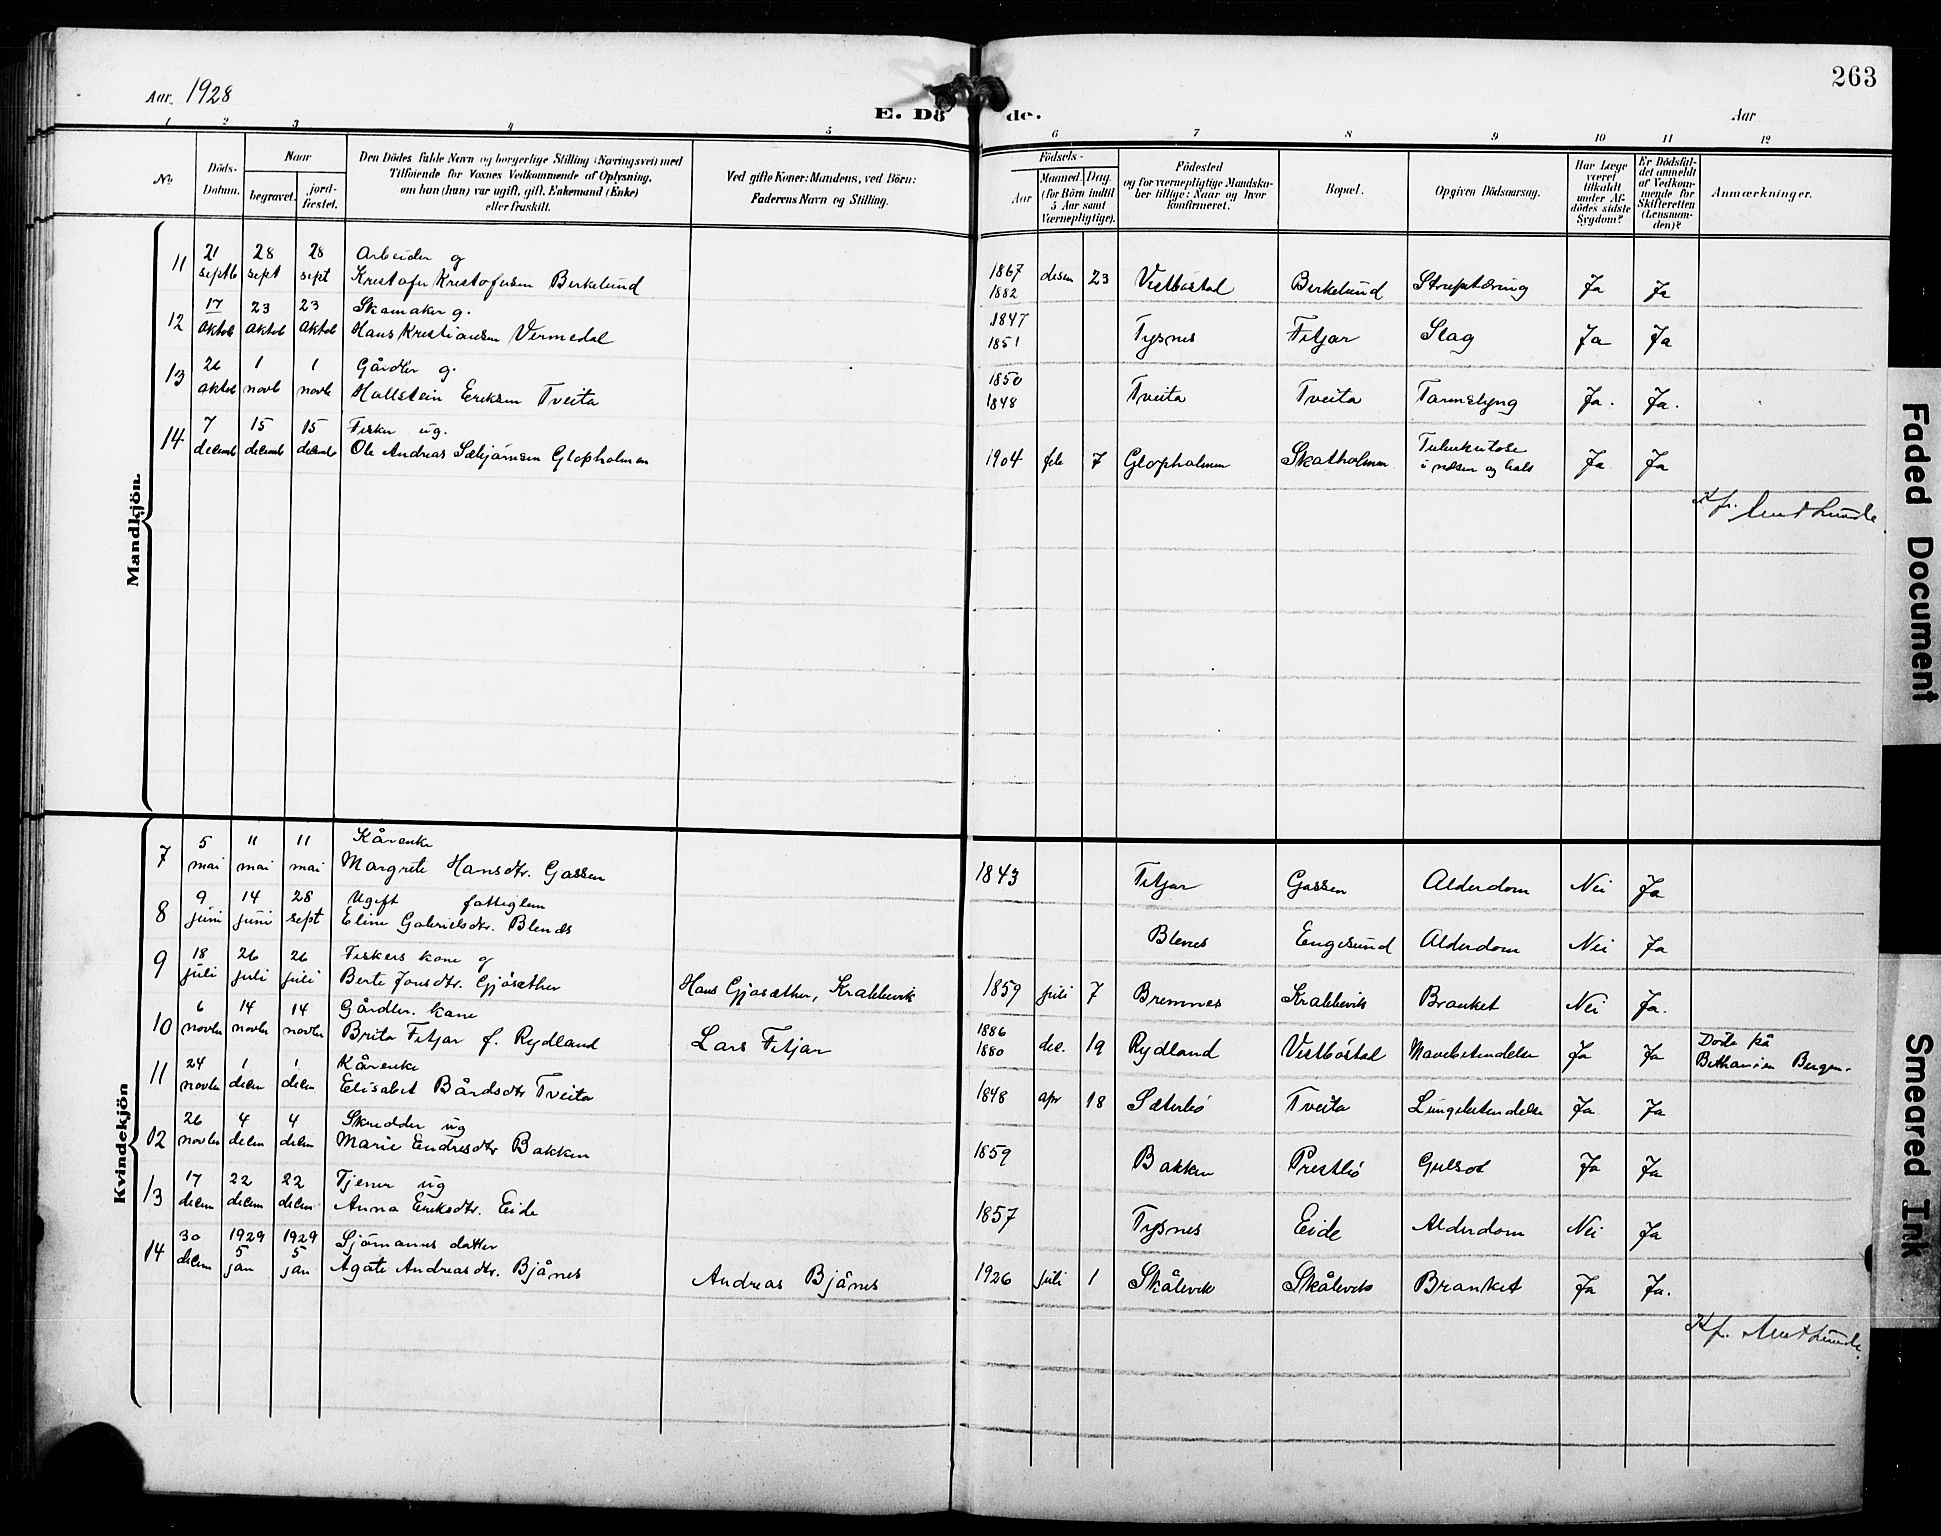 263
Aar. 1928
E. Dö de.
Aar
1 2 3 4 5 6 7 8 9 10 11 12
No
Döds-
Datum.
Naar
begravet.
jord-
fæstet.
Den Dödes fulde Navn og borgerlige Stilling (Næringsvei) med
Tilföiende for Voxnes Vedkommende af Oplysning,
om han (hun) var ugift, gift, Enkemand (Enke)
eller fraskilt.
Ved gifte Koner: Mandens, ved Börn:
Faderens Navn og Stilling.
Födsels-
Aar
Maaned. Dag
(for Börn indtil
5 Aar samt
Værnepligtige).
Födested
og for værnepligtige Mandska-
ber tillige: Naar og hvor
konfirmeret.
Bopæl.
Opgiven Dödsaarsag.
Har Læge
været
tilkaldt
under Af-
dödes sidste
Sygdom?
Er Dödsfal-
det anmeldt
af Vedkom-
mende for
Skifteretten
(Lensman-
den)?
Anmærkninger.
Mandkjön.
11 21 septb 28 sept 28 sept Arbeider g
Kristofer Kristofersen Birkelund 1867 1882 desem 23 Vestbøstad Birkelund Strupetæring Ja Ja
12 17 oktob 23 oktob 23 oktob Skomaker g.
Hans Kristiansen Vermedal 1847 1851 Tysnes Fitjar Slag Ja Ja
13 26 oktob 1 novb 1 novb Gårdbr g.
Hallstein Eriksen Tveita 1850 1848 Tveita Tveita Tarmslyng Ja. Ja.
14 7 decemb 15 decemb 15 decemb Fisker ug.
Ole Andreas Glopholmen 1904 feb 7 Glopholmen Skatholmen Tuberkulose
i næsen og hals Ja Ja
Kf.
Kvindekjön
7 5 mai 11 mai 11 mai Kårenke
Margrete Hansdtr. Gassen 1843 Fitjar Gassen Alderdom Nei Ja
8 9 juni 14 juni 28 sept Ugift fattiglem
Eline Gabrielsdtr. Blenes Blenes Engesund Alderdom Nei Ja
9 18 juli 26 juli 26 juli Fiskers kone g
Berte Jonsdtr. Gjøsæther Hans Gjøsæther, Krabbevik 1859 juli 7 Bremnes Krabbevik Brænket Nei Ja.
10 6 novbr 14 novbr 14 novbr Gårdbr. kone
Brita Fitjar f. Rydland Lars Fitjar 1886 1880 dec. 19 Rydland Vestbøstad Mavebetendelse Ja Ja Døde på
Bethanien Bergen.
11 24 novbr 1 decm 1 decm Kårenke
Elisabet Bårdsdtr Tveita 1848 apr 18 Sæterbø Tveita Lungebetendelse Ja Ja
12 26 novbr 4 decm 4 decm Skredder ug
Marie Endresdtr Bakken 1859 Bakken Prestbø Gulsot Ja Ja
13 17 decm 22 decm 22 decm Tjener ug
Anna Eriksdtr. Eide 1857 Tysnes Eide Alderdom Nei Ja
14 30 decem 1929 5 jan 1929 5 jan Sjømanns datter
Agate Andreasdtr. Bjånes Andreas Bjånes 1926 juli 1 Skålevik Skålevik Brænket Ja Ja.
Kf.
Faded Document
Smeared Ink